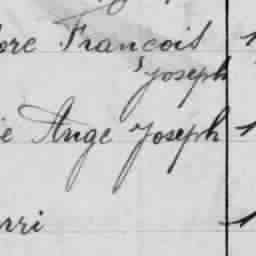 ore François
Joseph
ie Ange Joseph
rri